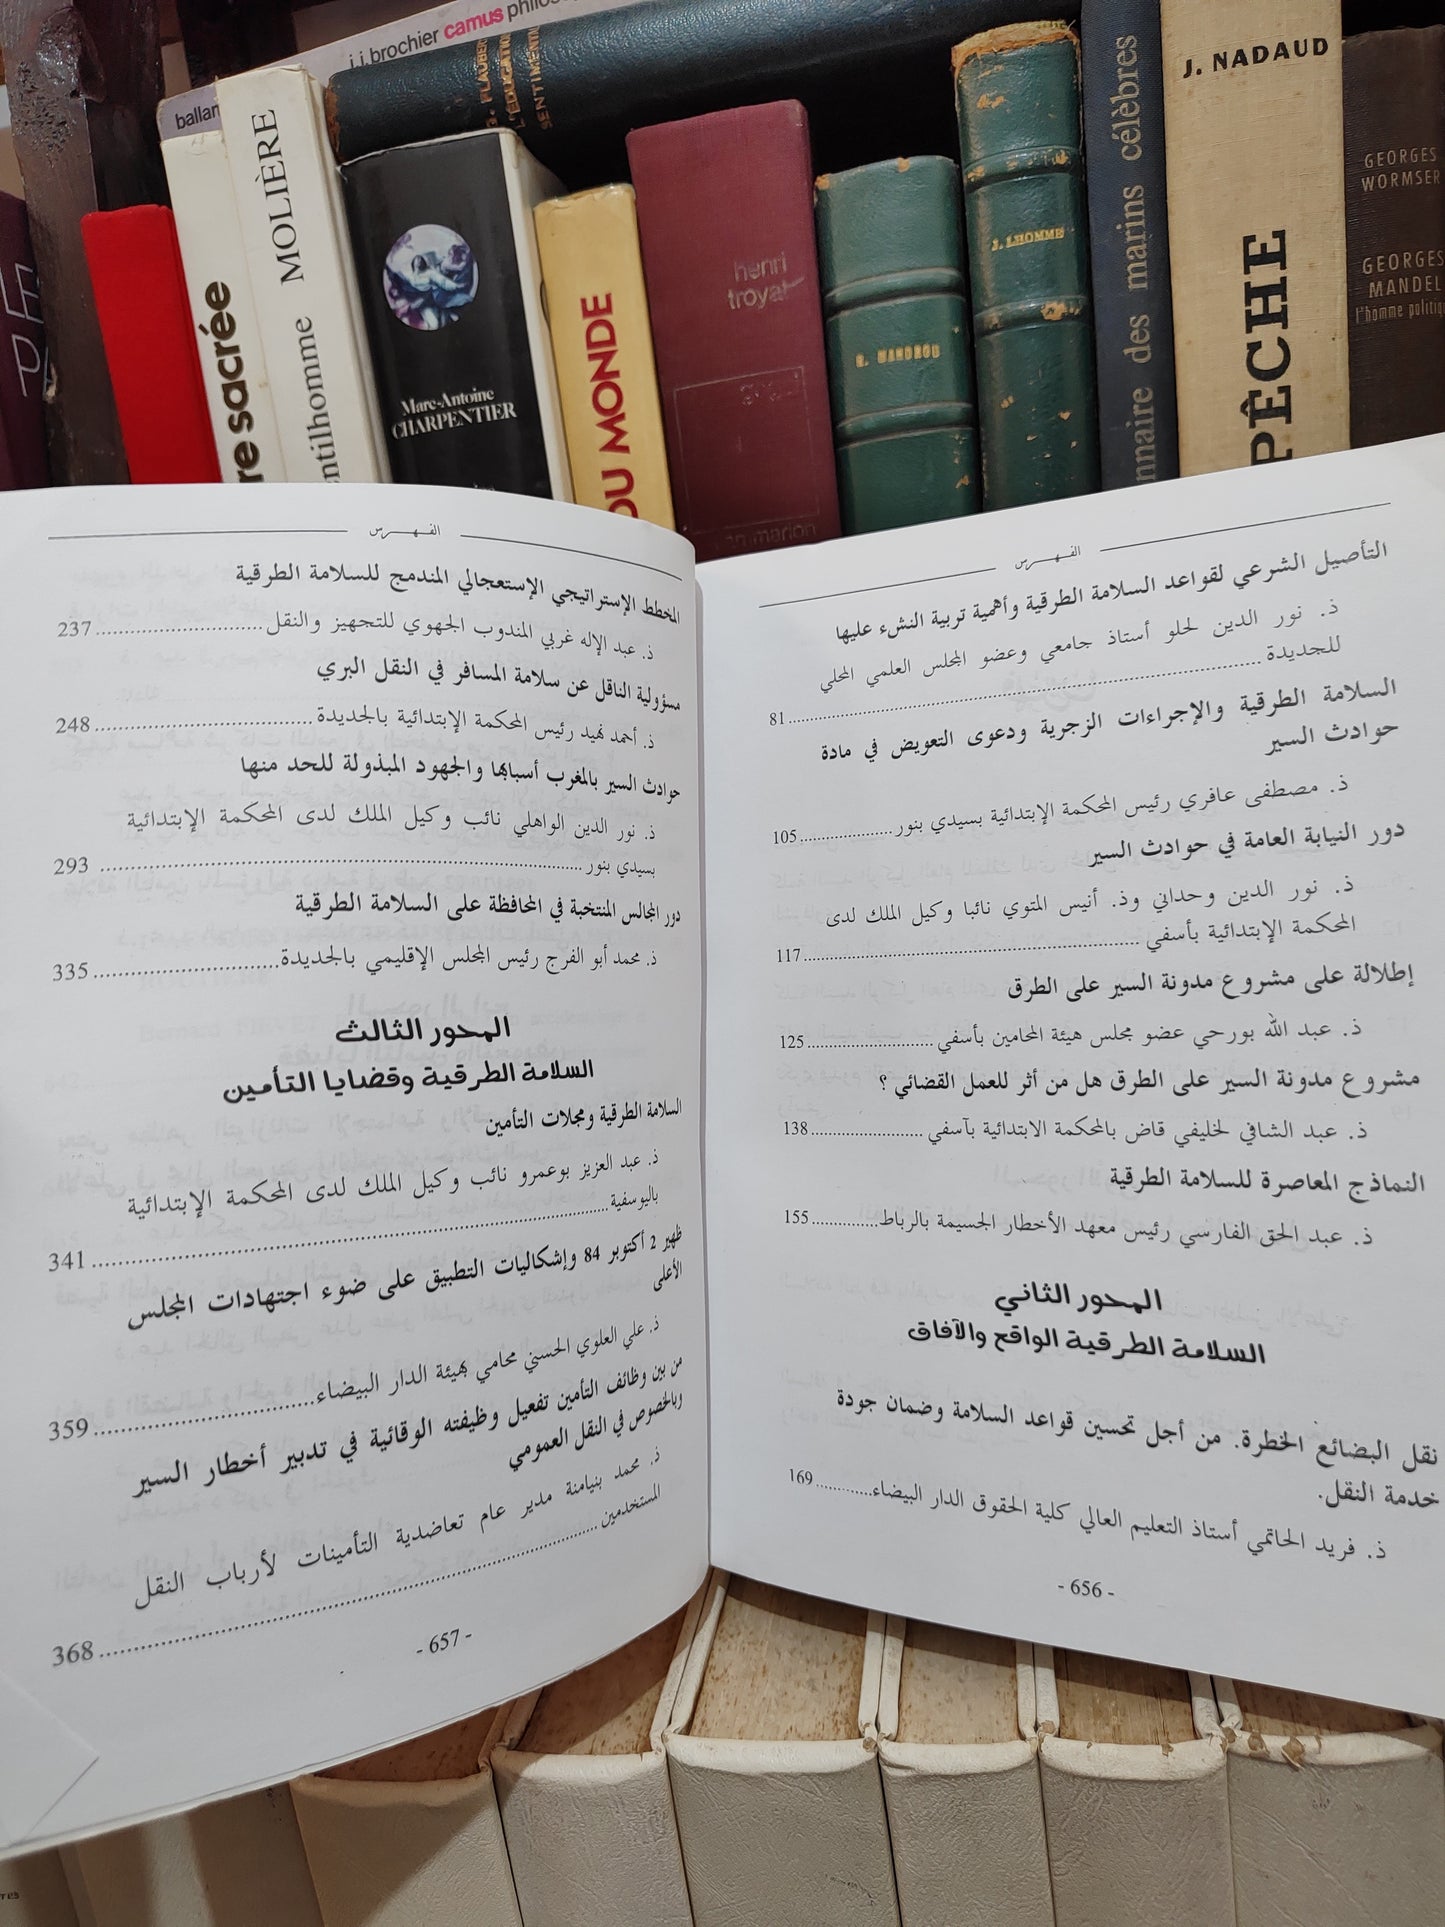 j.j. brochier camus
ballan
re sacrée
MOLIÈRE
ntilhomme
G. FLAUBERT
L'ÉDUCATION
SENTIMENTALE
Marc-Antoine
CHARPENTIER
DU MONDE
henri
troyat
R. MANDROU
J. LHOMME
nnaire des marins célèbres
J. NADAUD
PÊCHE
GEORGES
WORMSER
GEORGES
MANDEL
l'homme politiq
الفهرس
التأصيل الشرعي لقواعد السلامة الطرقية وأهمية تربية النشء عليها
ذ. نور الدين لحلو أستاذ جامعي وعضو المجلس العلمي المحلي
للجديدة ............ 81
السلامة الطرقية والإجراءات الزجرية ودعوى التعويض في مادة
حوادث السير
ذ. مصطفى عافري رئيس المحكمة الإبتدائية بسيدي بنور ............ 105
دور النيابة العامة في حوادث السير
ذ. نور الدين وحداني وذ. أنيس المتوي نائبا وكيل الملك لدى
المحكمة الإبتدائية بأسفي ............ 117
إطلالة على مشروع مدونة السير على الطرق
ذ. عبد الله بورحي عضو مجلس هيئة المحامين بأسفي ............ 125
مشروع مدونة السير على الطرق هل من أثر للعمل القضائي ؟
ذ. عبد الشافي لخليفي قاض بالمحكمة الابتدائية بآسفي ............ 138
النماذج المعاصرة للسلامة الطرقية
ذ. عبد الحق الفارسي رئيس معهد الأخطار الجسيمة بالرباط ............ 155
المحور الثاني
السلامة الطرقية الواقع والآفاق
نقل البضائع الخطرة. من أجل تحسين قواعد السلامة وضمان جودة
خدمة النقل.
ذ. فريد الحاتمي أستاذ التعليم العالي كلية الحقوق الدار البيضاء ............ 169
- 656 -
الفهرس
المخطط الإستراتيجي الإستعجالي المندمج للسلامة الطرقية
ذ. عبد الإله غربي المندوب الجهوي للتجهيز والنقل ............ 237
مسؤولية الناقل عن سلامة المسافر في النقل البري
ذ. أحمد نهيد رئيس المحكمة الإبتدائية بالجديدة ............ 248
حوادث السير بالمغرب أسبابها والجهود المبذولة للحد منها
ذ. نور الدين الواهلي نائب وكيل الملك لدى المحكمة الإبتدائية
بسيدي بنور ............ 293
دور المجالس المنتخبة في المحافظة على السلامة الطرقية
ذ. محمد أبو الفرج رئيس المجلس الإقليمي بالجديدة ............ 335
المحور الثالث
السلامة الطرقية وقضايا التأمين
السلامة الطرقية ومجلات التأمين
ذ. عبد العزيز بوعمرو نائب وكيل الملك لدى المحكمة الإبتدائية
باليوسفية ............ 341
ظهير 2 أكتوبر 84 وإشكاليات التطبيق على ضوء اجتهادات المجلس
الأعلى
ذ. علي العلوي الحسني محامي بهيئة الدار البيضاء ............ 359
من بين وظائف التأمين تفعيل وظيفته الوقائية في تدبير أخطار السير
وبالخصوص في النقل العمومي
ذ. محمد بنيامنة مدير عام تعاضدية التأمينات لأرباب النقل
المستخدمين ............ 368
- 657 -